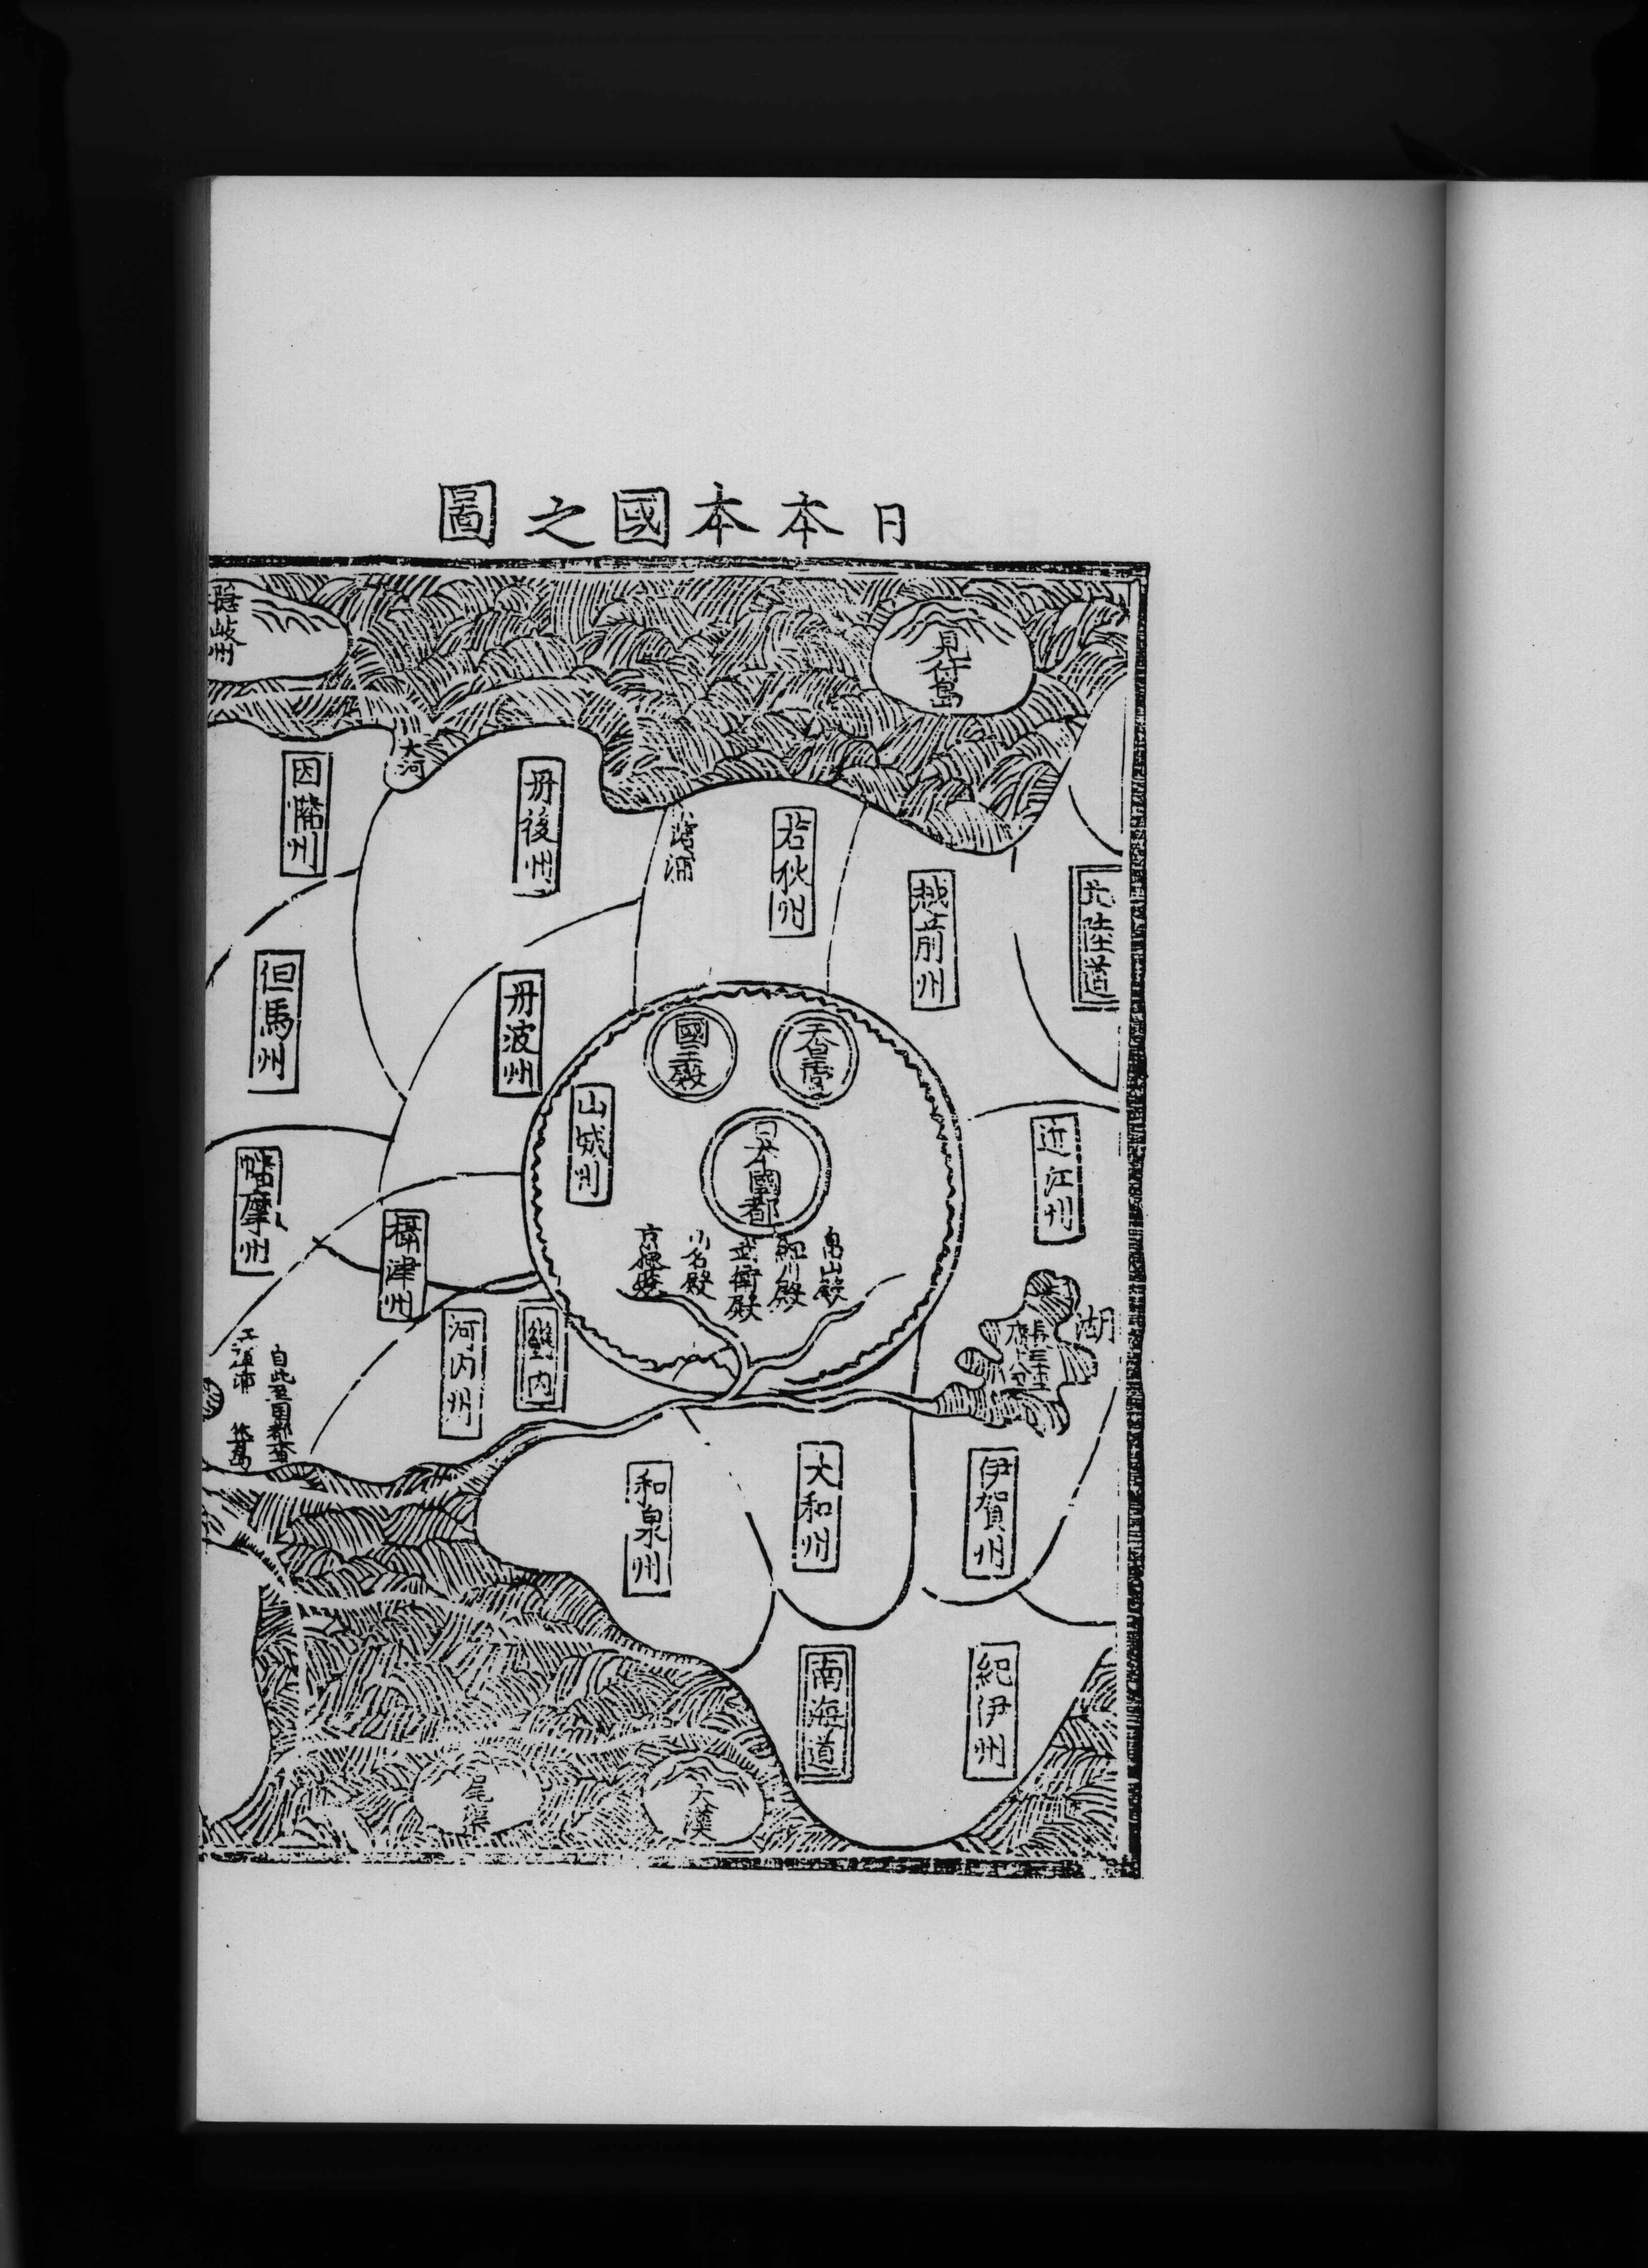 日本本國之圖
見付島
隱岐州
大河
北陸道
越前州
若狄州
丹後州
因幡州
丹波州
但馬州
國王殿
日本國都
山城州
畠山殿
細川殿
武衛殿
山名殿
京極殿
近江州
湖
攝津州
幡摩州
畿內
河內州
自此至國都
伊賀州
大和州
和泉州
紀伊州
南海道
大漢
尾渠